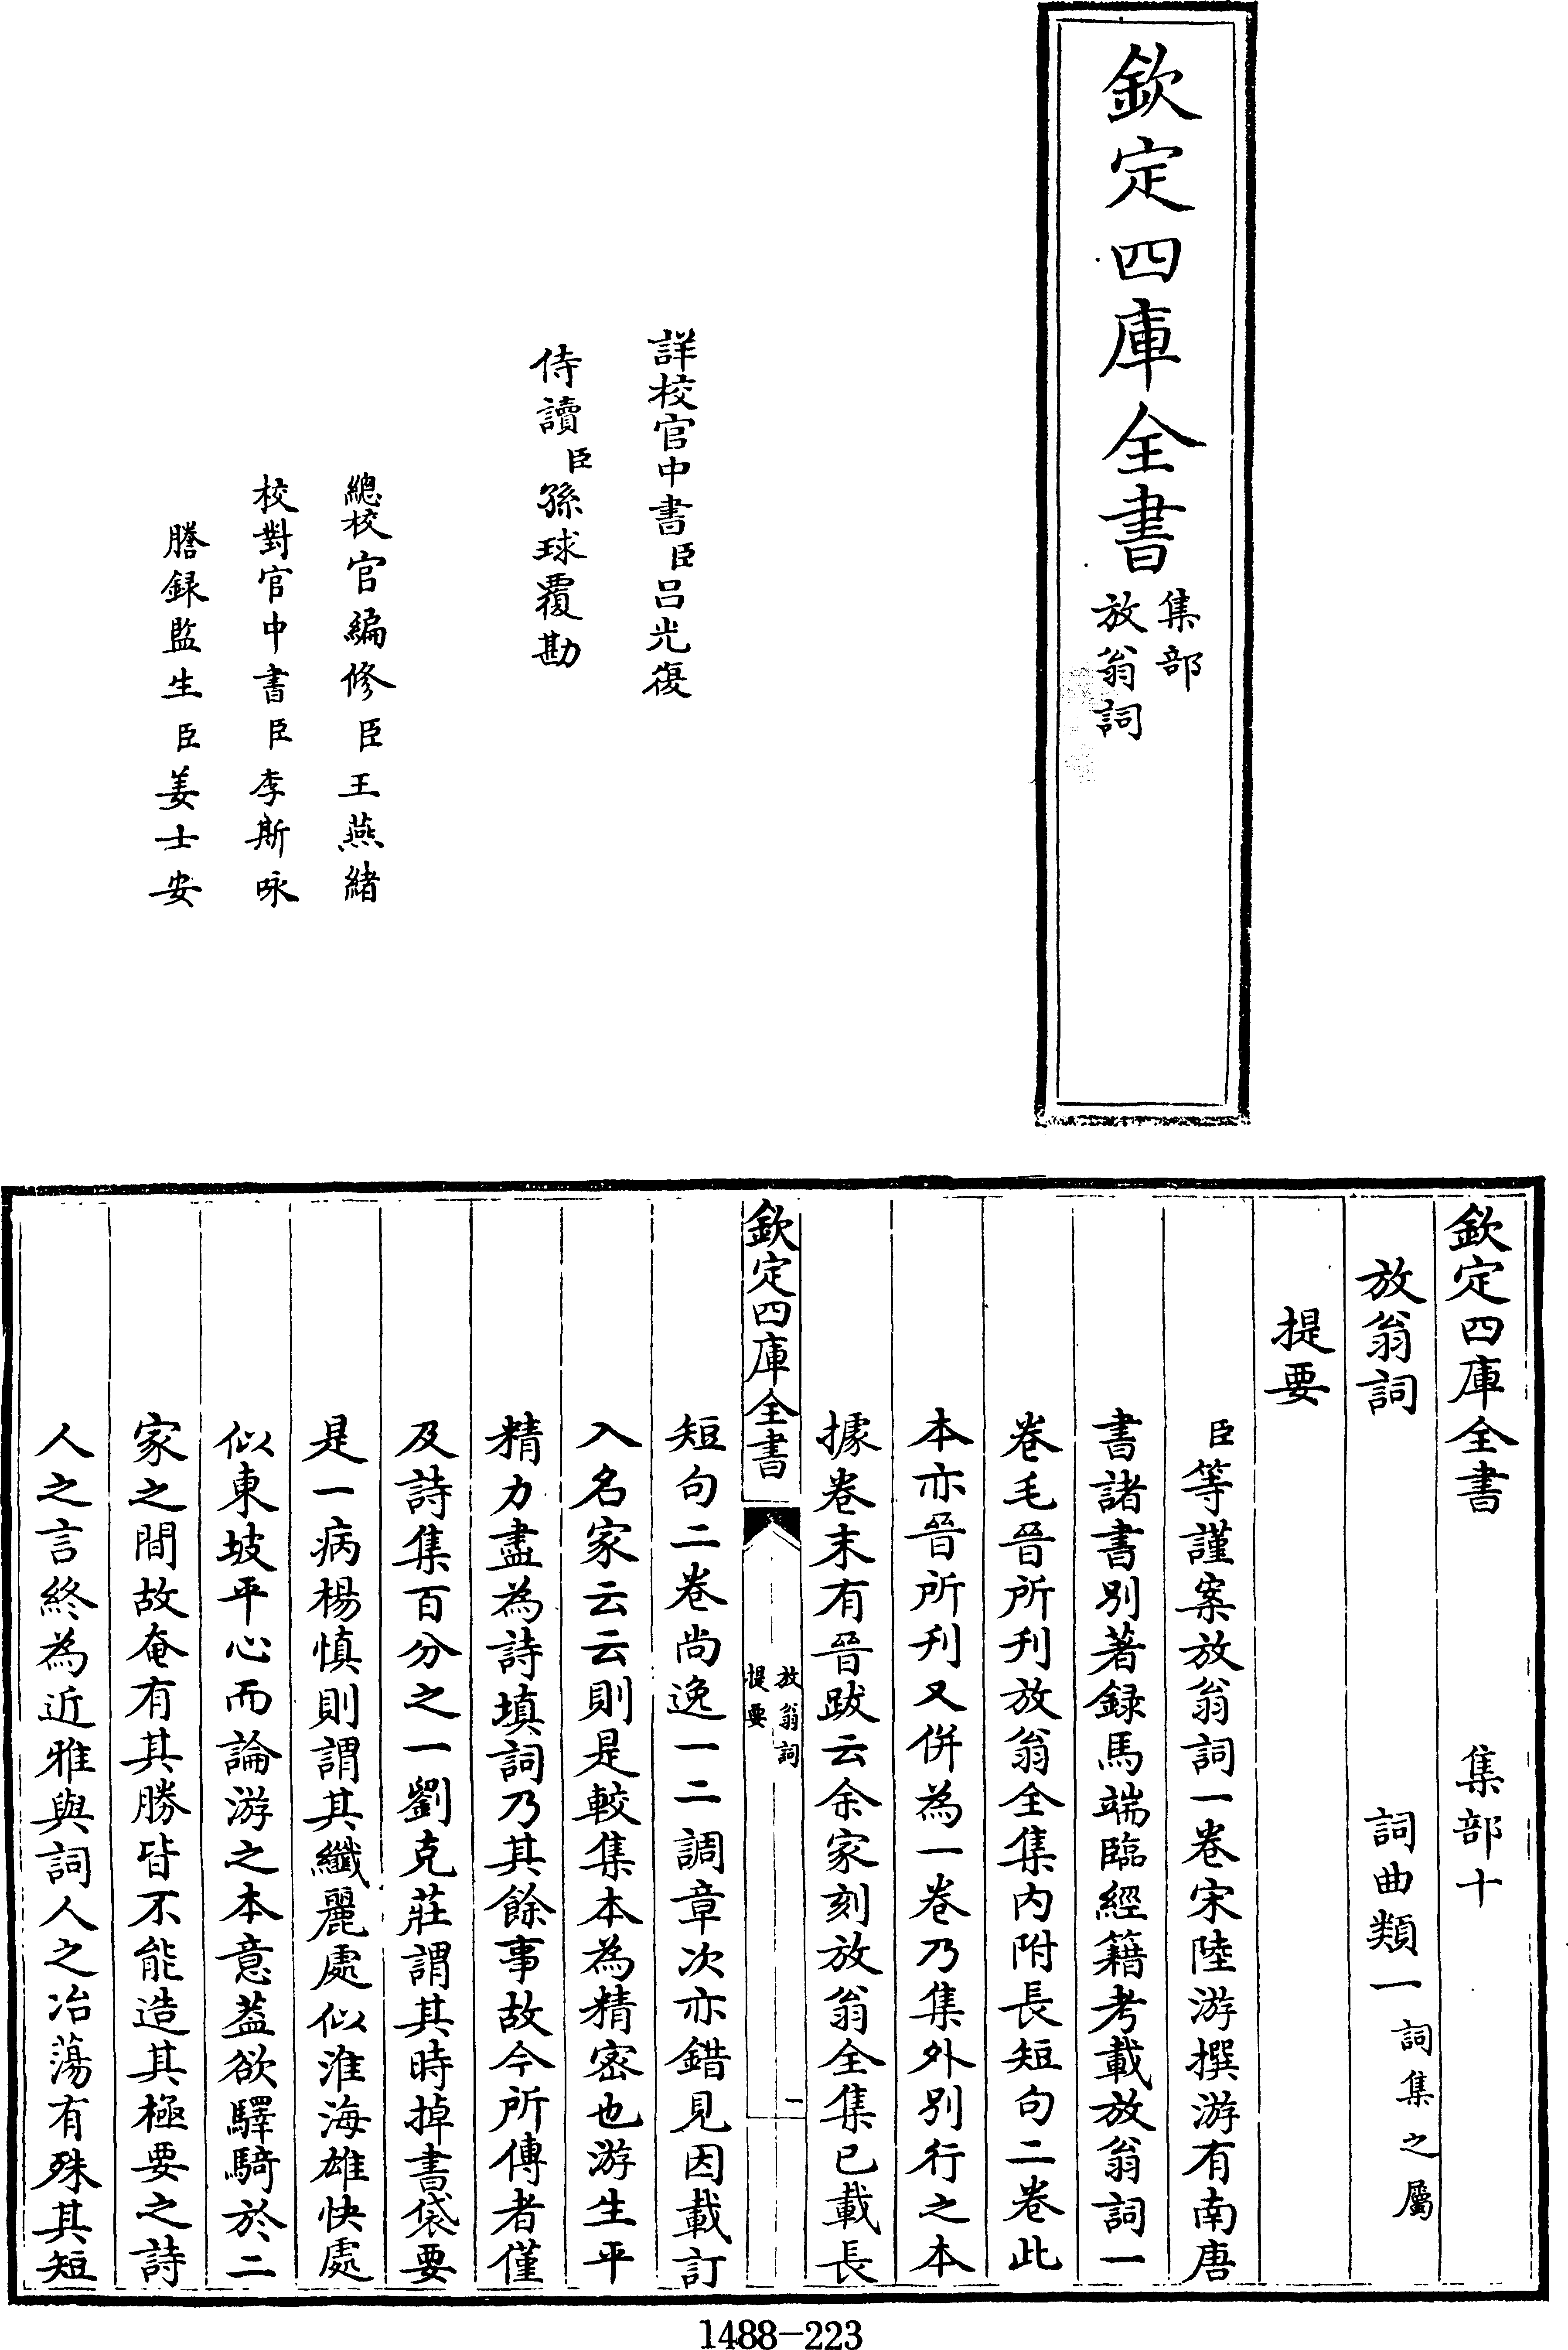 欽定四庫全書
集部
放翁詞
詳校官中書臣呂光復
侍讀臣孫球覆勘
總校官編修臣王燕緒
校對官中書臣李斯咏
謄録監生臣姜士安
欽定四庫全書 集部十
放翁詞 詞曲類一詞集之屬
提要
臣等謹案放翁詞一卷宋陸游撰游有南唐
書諸書别著録馬端臨經籍考載放翁詞一
卷毛晉所刋放翁全集内附長短句二卷此
本亦晉所刋又併為一卷乃集外别行之本
據卷末有晉跋云余家刻放翁全集已載長
欽定四庫全書
放翁詞
提要
一
短句二卷尚逸一二調章次亦錯見因載訂
入名家云云則是較集本為精密也游生平
精力盡為詩填詞乃其餘事故今所傳者僅
及詩集百分之一劉克莊謂其時掉書袋要
是一病楊慎則謂其纖麗處似淮海雄快處
似東坡平心而論游之本意葢欲驛騎於二
家之間故奄有其勝皆不能造其極要之詩
人之言終為近雅與詞人之冶蕩有殊其短
1488-223